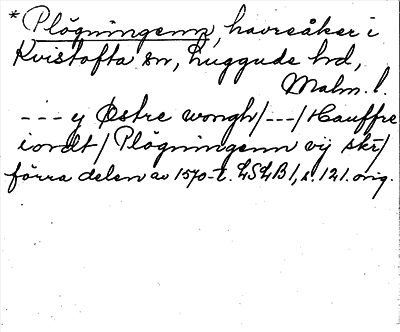 *Plögningenn, havreåker i
Kvistofta sn, Luggude hd,
Malm. l.
--- y Østre wongh/---/Hauffre
iordt/Plögningenn vij skr/
förra delen av 1570-t. LSLB 1, s. 121. orig.